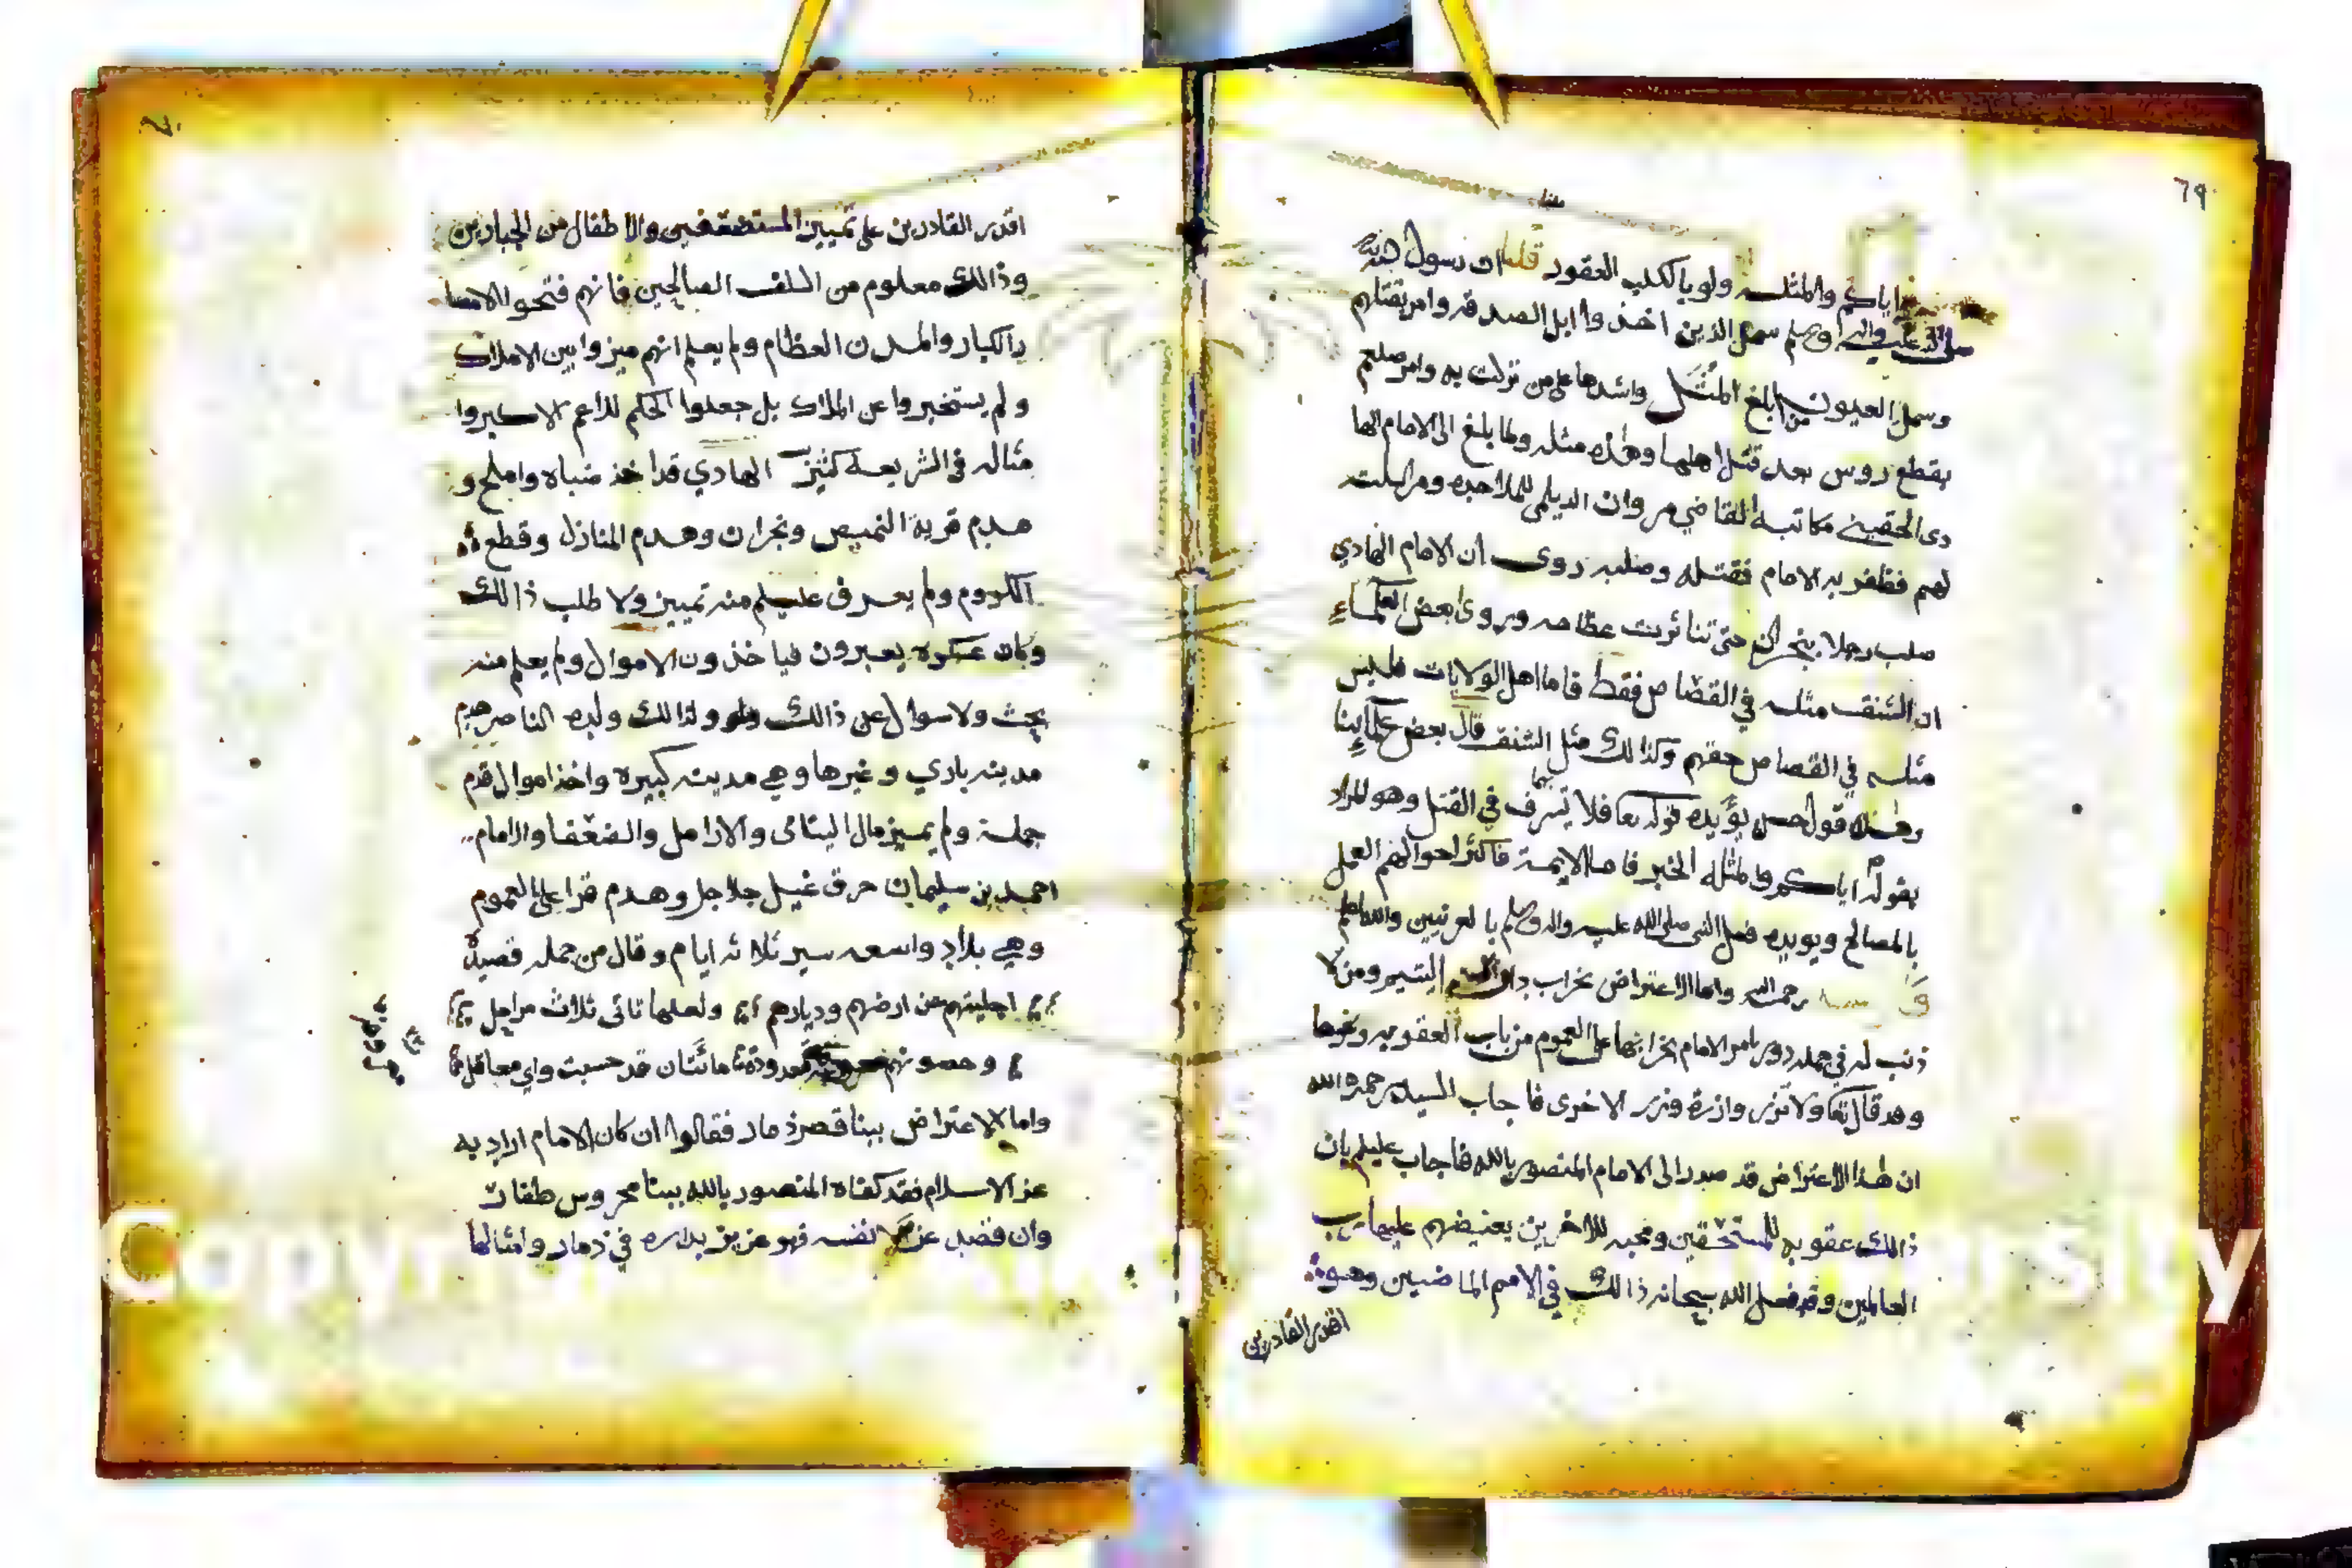 ٦٩
اياكم والمثلة ولو بالكلب العقور قلنا ان رسول الله
صلى الله عليه واله وسلم سمل الذين اخذوا ابل الصدقه وامر بقتلهم
وسمل العيون من ابلغ المثل واشدها على من نزلت به وامر صلعم
بقطع روس بعد قتل اهلها وهذه مثله ولما بلغ الى الامام الها
دى الحقيني مكاتبة القاضي مروان الديلمي للملاحده ومراسلته
لهم فظفر به الامام فقتله وصلبه روى ان الامام الهادي
صلب رجلا بنجران حتى تناثرت عظامه وروى بعض العلماء
ان الشنق مثله في القصاص فقط فاما اهل الولايات فليس
مثله في القصاص حقهم وكذالك مثل الشنق قال بعض علمائنا
وهذه قول حسن يؤيده قوله تعا فلا يسرف في القتل وهو المراد
بقوله اياكم والمثله الخبر فاما الايمة فاكثر احوالهم العمل
بالمصالح ويويده فعل النبي صلى الله عليه واله وسلم بالعرنيين والله اعلم
رحمه الله واما الاعتراض بخراب دار اليتيم ومن لا
ذنب له في جمله دور يامر الامام بخرابها على العموم من باب العقوبه وغيرها
وقد قال تعا ولا تزر وازرة وزر الاخرى فاجاب السيد رحمه الله
ان هذا الاعتراض قد صدر الى الامام المنصور بالله فاجاب عليلم بان
ذالك عقوبه للمستحقين ومحبه للاخرين يعيضهم عليها رب
العالمين وقد فعل الله سبحانه ذالك في الامم الماضيين وهو
اقدر القادرين
اقدر القادرين على تمييز المستضعفين والاطفال من الجبارين
وذالك معلوم من السلف الصالحين فانهم فتحوا الامصا
ر الكبار والمدن العظام ولم يعلم انهم ميزوا بين الاملاك
ولم يستخبروا عن الملاك بل جعلوا الحكم للاعم الاكبر وا
مثاله في الشريعة كثير الهادي قد اخذ ضباه واملح و
هدم قرية النميص ونجران وهدم المنازل وقطع
الكروم ولم يعرف عليلم منه تمييز ولا طلب ذالك
وكان عسكره يعبرون فياخذون الاموال ولم يعلم منه
بحث ولا سوال عن ذالك وكذالك ولده الناصر هدم
مدينه باري وغيرها وهي مدينه كبيره واخذ اموال قدم
جملة ولم يميز مال اليتامى والارامل والضعفا والامام
احمد بن سليمان حرق غيل جلاجل وهدم قرا على العموم
وهي بلاد واسعه سير ثلاثه ايام وقال من جمله قصيدة
اجليتهم عن ارضهم وديارهم ولعلها تاتى ثلاث مراحل
وحصونهم معدودة مائتان قد حسبت واي معاقل
واما الاعتراض ببنا قصر ذمار فقالوا ان كان الامام اراد به
عز الاسلام فقد كفاه المنصور بالله ببنا محروس ظفار
وان قصد عز نفسه فهو عزيز بداره في ذمار وامثالها